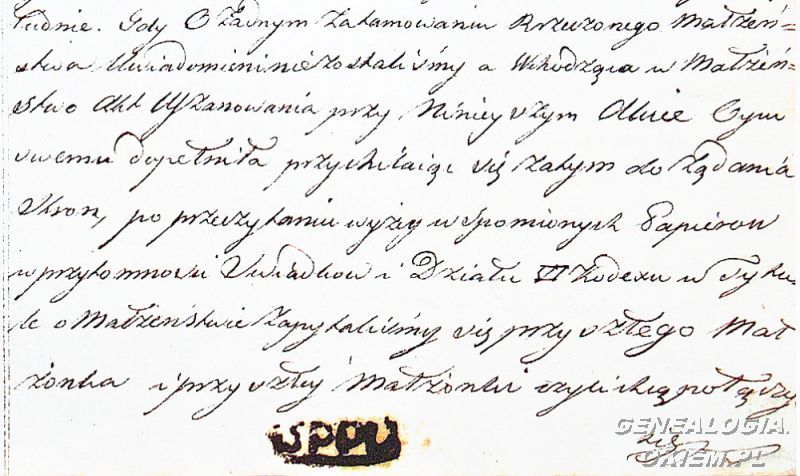 ludnie. Gdy O żadnym zatamowaniu Rzeczonego Małżeń=
stwa Uwiadomieni nie zostaliśmy a Wchodząca w Małżeń=
stwo Akt Uszanowania przy Ninieyszym Akcie Oycu
swemu dopełniła przychilaiąc się zatym do żądania
Stron, po przeczytaniu wyżey wspomionych Papierow
w przytomnosci Swiadkow i Działu VI Kodexu w Tytu=
le o Małżeństwie Zapytaliśmy się przyszłego Mał
żonka i przyszłey Małżonki czyli chcą połączy
się
GENEALOGIA.
OKIEM.PL